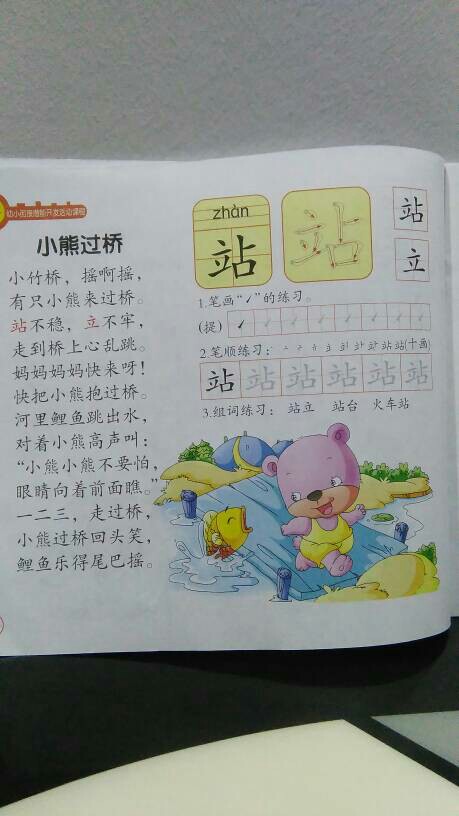 幼小衔接潜能开发活动课程
小熊过桥
小竹桥，摇啊摇，
有只小熊来过桥。
站不稳，立不牢，
走到桥上心乱跳。
妈妈妈妈快来呀！
快把小熊抱过桥。
河里鲤鱼跳出水，
对着小熊高声叫：
“小熊小熊不要怕，
眼睛向着前面瞧。”
一二三，走过桥，
小熊过桥回头笑，
鲤鱼乐得尾巴摇。
zhàn
站
站
站
立
1.笔画“㇀”的练习。
(提)
2.笔顺练习：
站(十画)
站 站 站 站 站 站
3.组词练习： 站立 站台 火车站